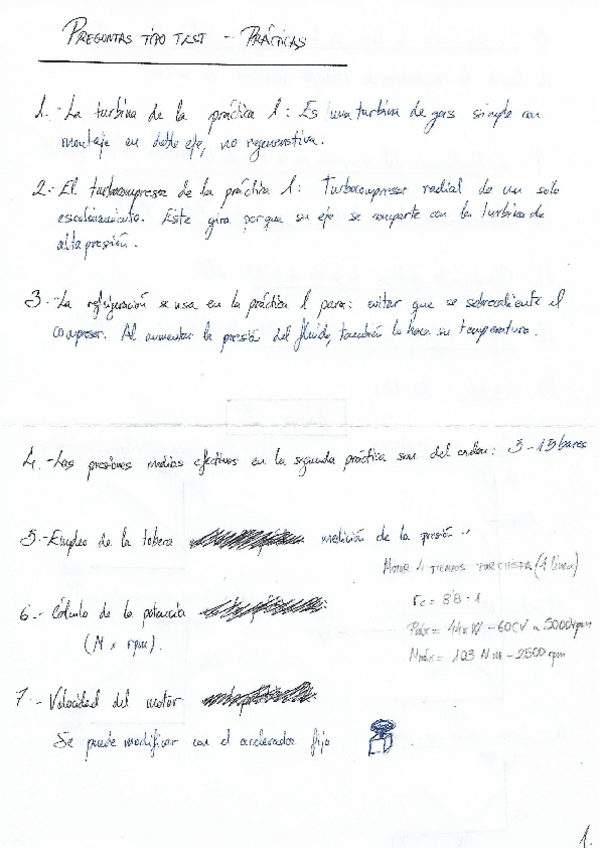 PREGUNTAS TIPO TEST -- PRÁCTICAS
1.- La turbina de la práctica 1: Es una turbina de gas simple con
montaje en doble eje, no regenerativa.
2.- El turbocompresor de la práctica 1: Turbocompresor radial de un solo
escalonamiento. Este gira porque su eje se comparte con la turbina de
alta presión.
3.- La refrigeración se usa en la práctica 1 para: evitar que se sobrecaliente el
compresor. Al aumentar la presión del fluido, también lo hace su temperatura.
4.- Las presiones medias efectivas en la segunda práctica son del orden: 3-13 bares
5.- Empleo de la tobera medición de la presión --
MOTOR 4 TIEMPOS (4 línea)
rc = 8'8:1
6.- Cálculo de la potencia
Pmáx = 44 KW - 60CV a 5000 rpm
(M x rpm).
Mmáx = 103 Nm - 2500 rpm
7.- Velocidad del motor
Se puede modificar con el acelerador fijo
1.